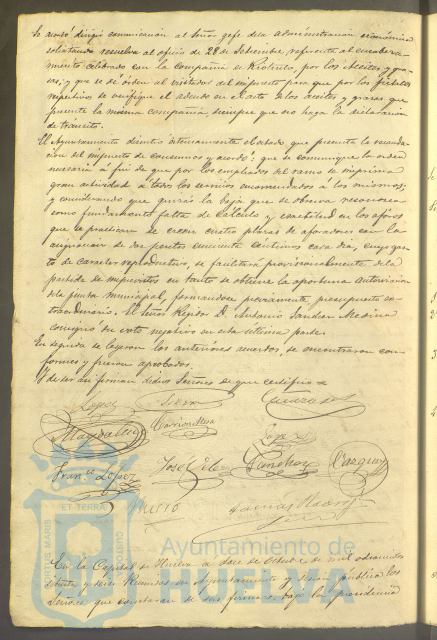 Se acordó dirigir comunicación al Señor Gefe de la administración económica
solicitando resuelva al oficio de 28 de Setiembre, referente al encabeza-
miento celebrado con la Compañia de Riotinto, por los aceites y gra-
sas; y que se dé orden al visitador del impuesto para que por los fieles
respectivos se verifique el adeudo en el acto de los aceites y grasas que
presente la misma compañía, siempre que no haga la declaración
de tránsito.
El Ayuntamiento discutió detenidamente el estado que presenta la recauda-
ción del impuesto de consumos y acordó: que se comunique la orden
necesaria á fin de que por los empleados del ramo se imprima
gran actividad á todos los servicios encomendados á los mismos;
y considerando que quizás la baja que se observa reconozca
como fundamento falta de cálculo y exactitud en los aforos
que se practican se creen cuatro plazas de aforadores con la
asignación de dos pesetas cincuenta céntimos cada dia, cuyo gas-
to de caracter reproductivo, se facilitará provisionalmente de la
partida de imprevistos en tanto se obtiene la oportuna autorización
de la junta municipal, formándose previamente, presupuesto es-
traordinario. El Señor Regidor D. Antonio Sanchez Medina
consignó su voto negativo en esta última parte.
En seguida se leyeron los anteriores acuerdos, se encontraron con-
formes y fueron aprobados.
Y de ser asi firman dichos Señores de que certifico =
Lopez
Garrido
Lopez
Franco. Lopez
José
Sanchez
Vazquez
ET TERRÆ
Ayuntamiento de
HUELVA
En la Capital de Huelva á doce de Octubre de mil ochocientos
setenta y seis: Reunidos en Ayuntamiento y sesión pública los
Señores que constarán de sus firmas, bajo la presidencia